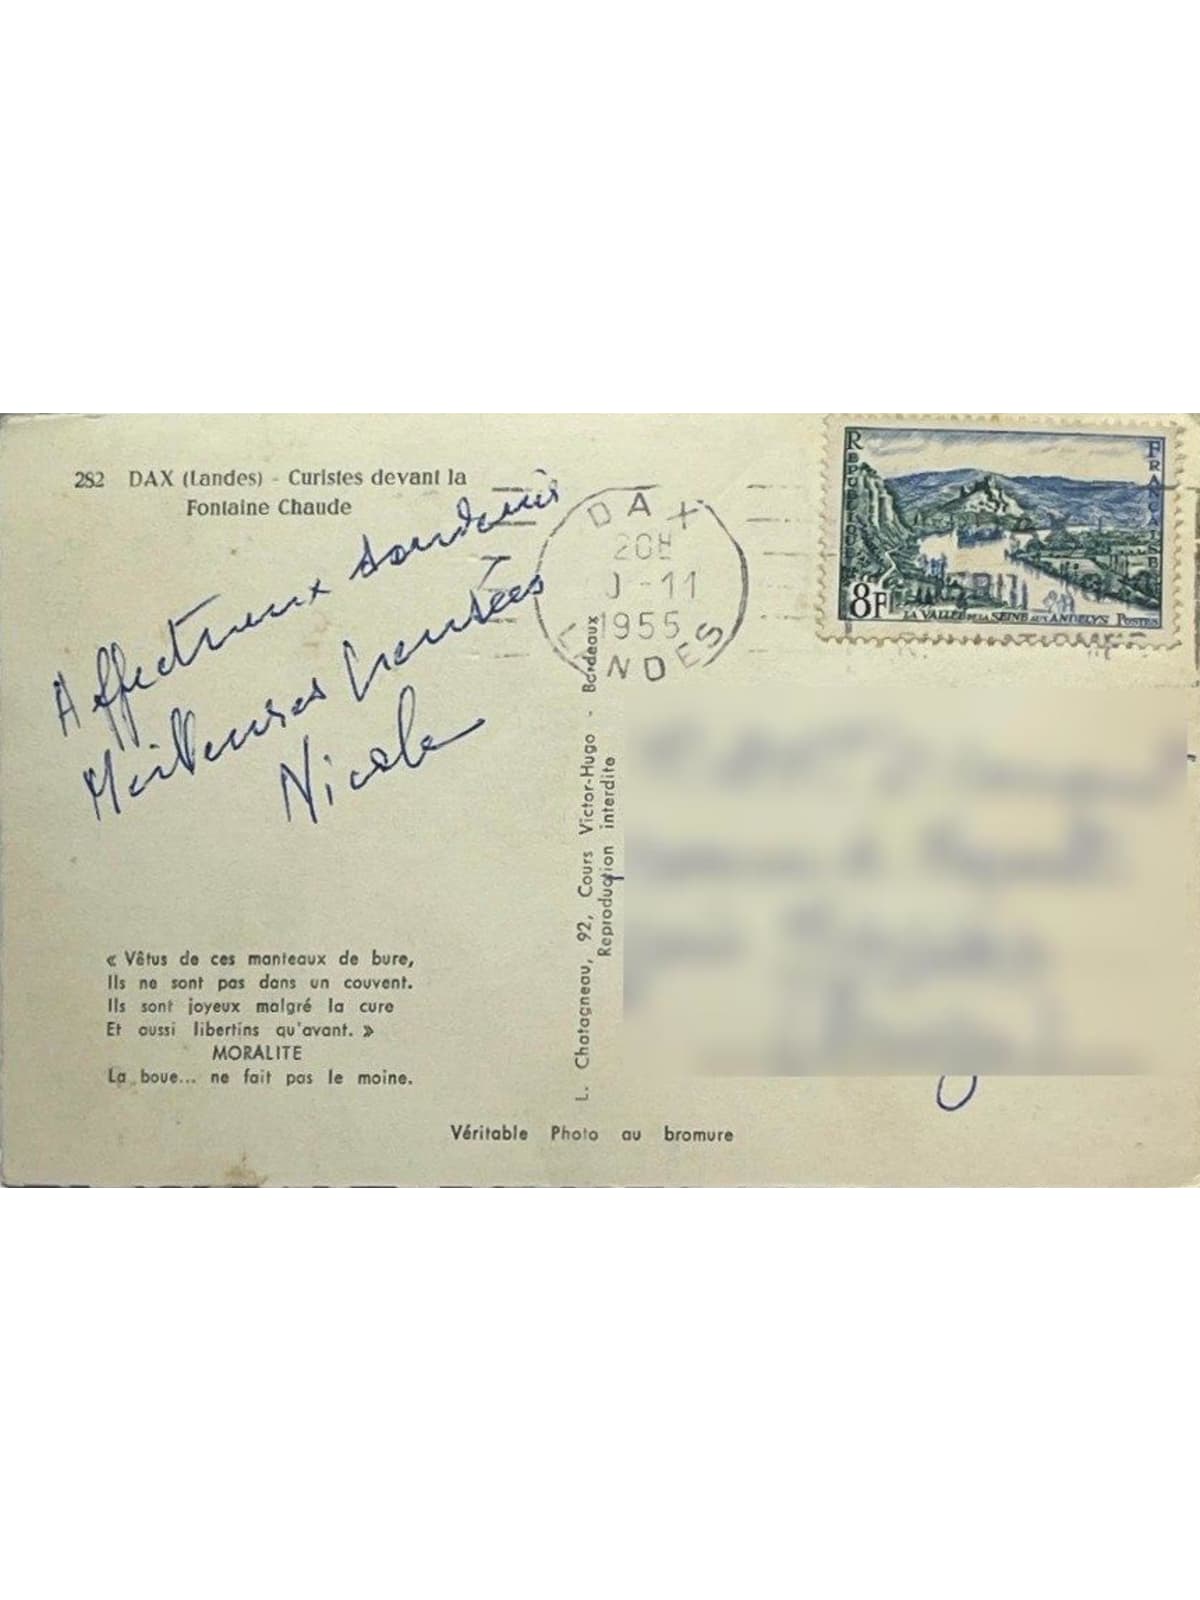 282 DAX (Landes) - Curistes devant la
Fontaine Chaude
Affectueux souvenirs
Meilleures pensées
Nicole
« Vêtus de ces manteaux de bure,
Ils ne sont pas dans un couvent.
Ils sont joyeux malgré la cure
Et aussi libertins qu'avant. »
MORALITE
La boue... ne fait pas le moine.
Véritable Photo au bromure
L. Chatagneau, 92, Cours Victor-Hugo - Bordeaux
Reproduction interdite
DAX
20H
-11
1955
NDES
REPUBLIQUE FRANÇAISE
8F
LA VALLEE DE LA SEINE AUX ANDELYS POSTES